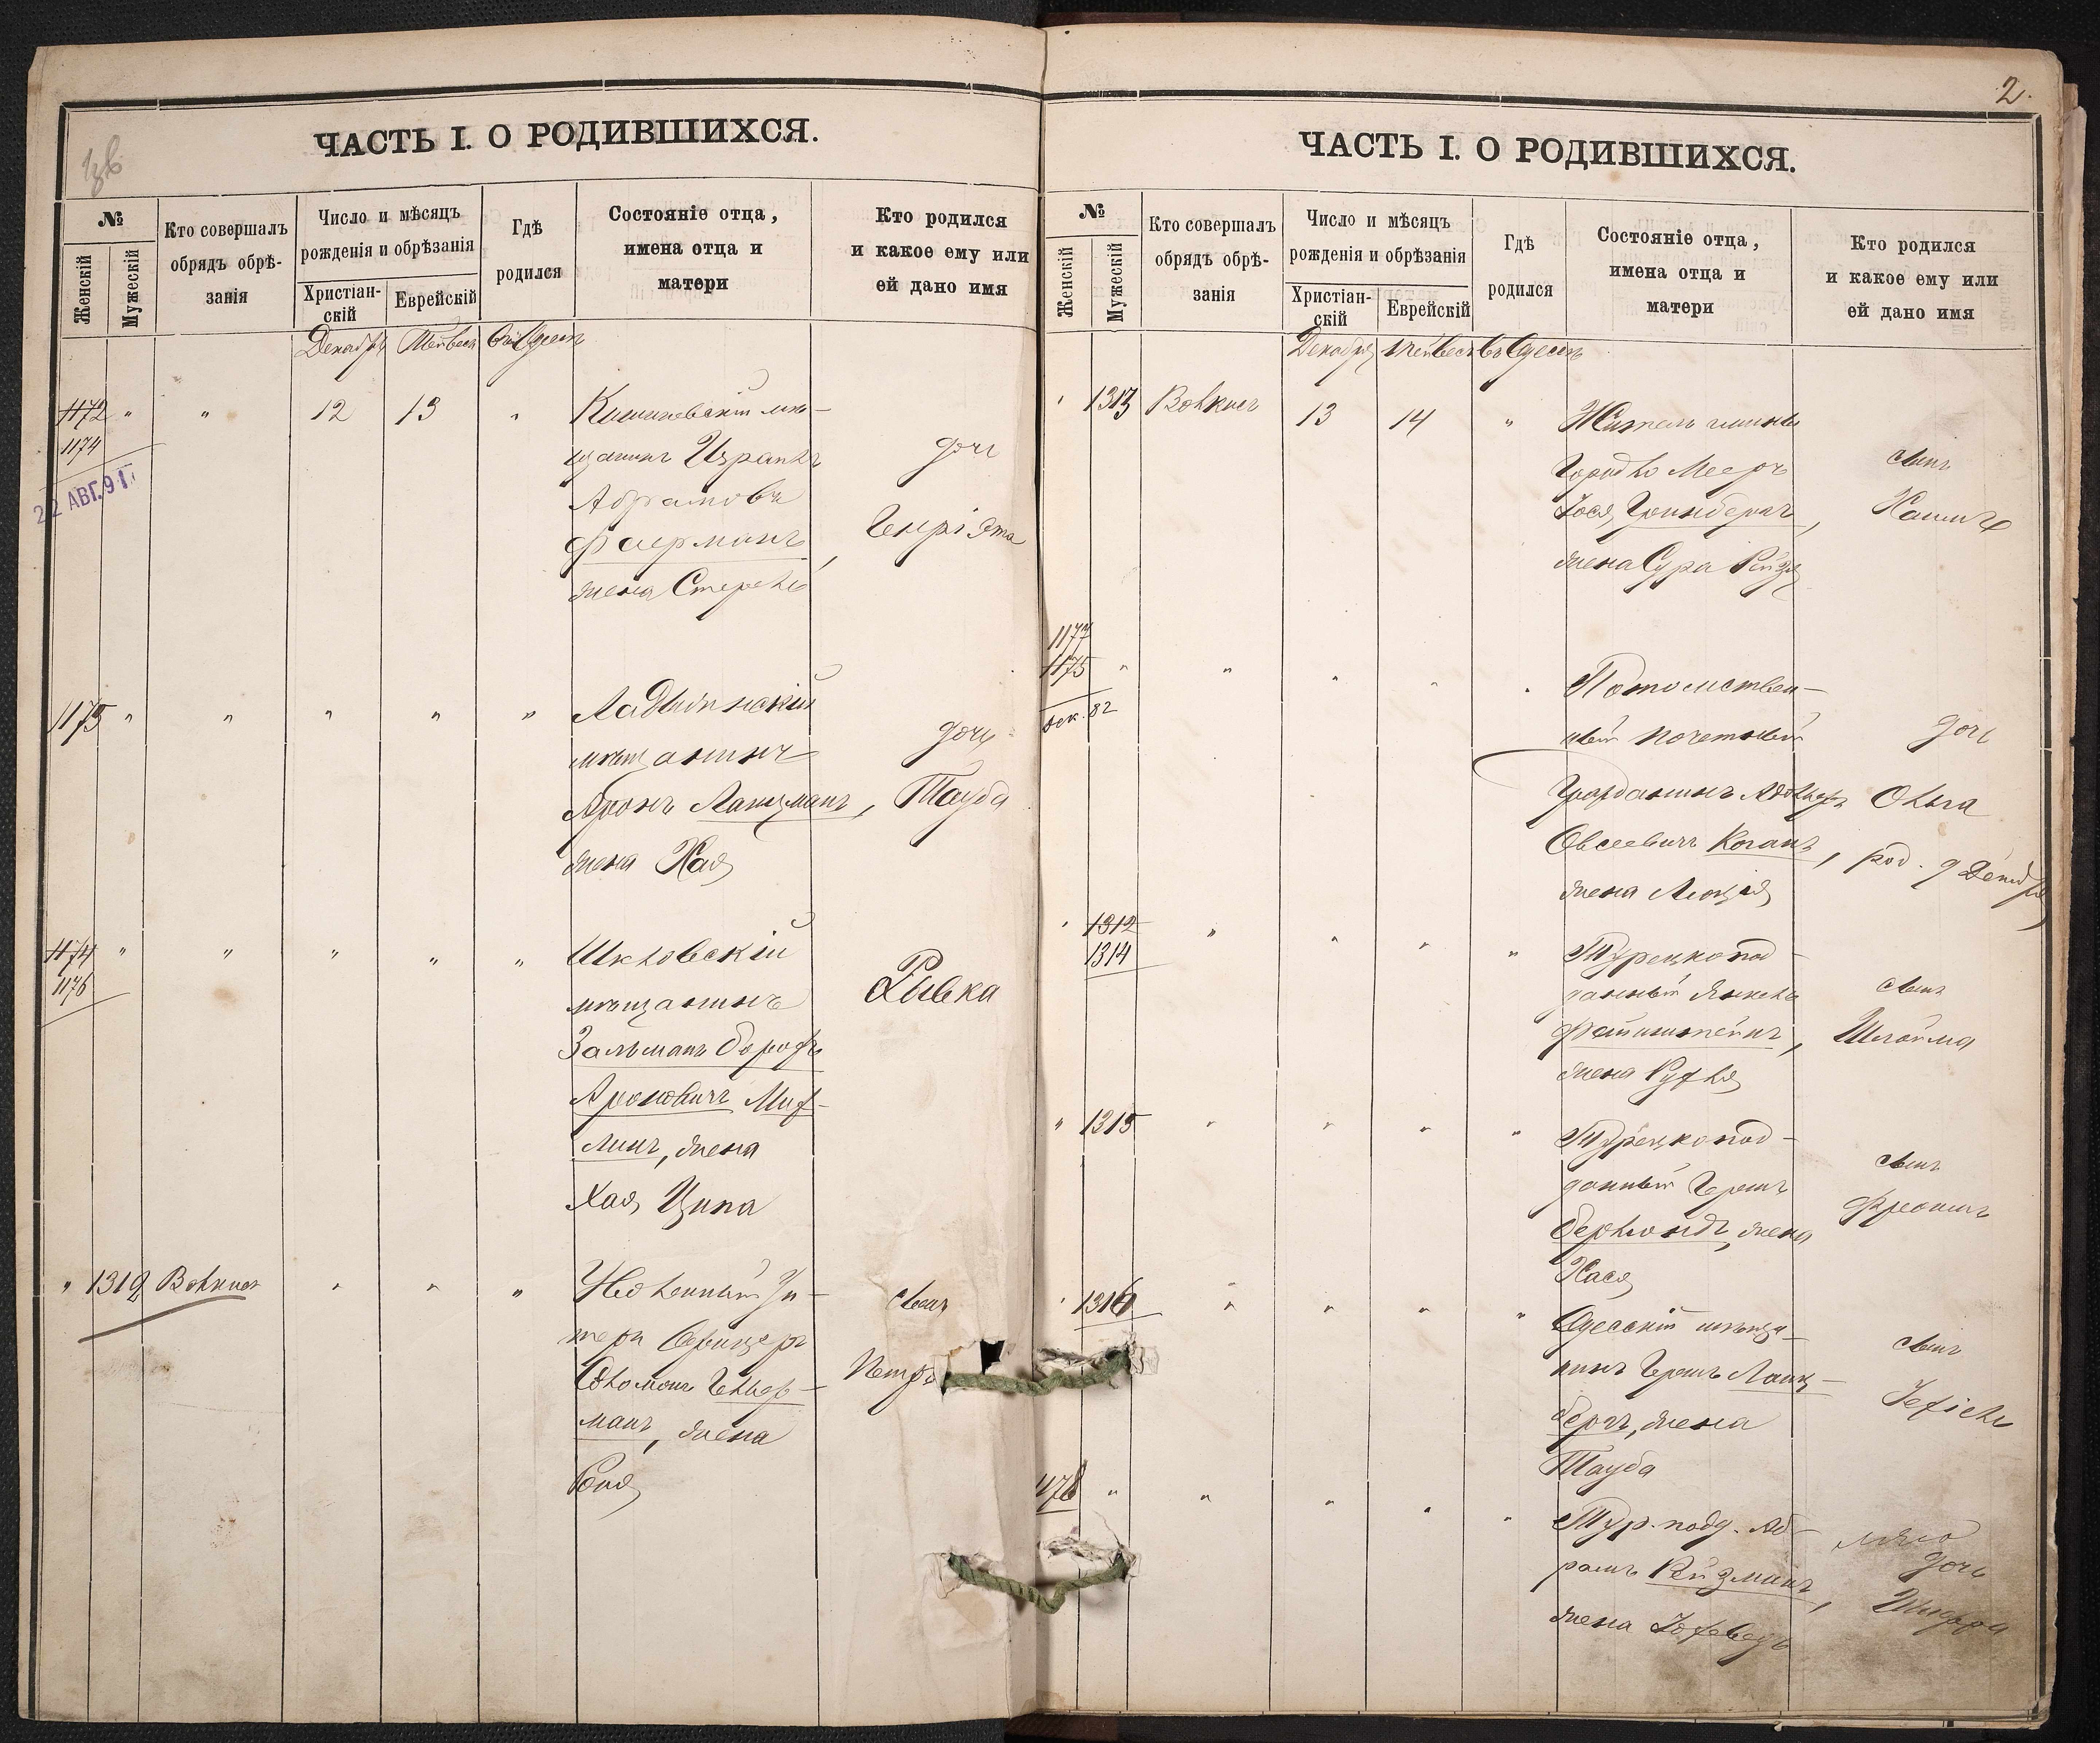 ЧАСТЬ I. О РОДИВШИХСЯ.
№
Женскій
Мужескій
Кто совершалъ
обрядъ обрѣ-
занія
Число и мѣсяцъ
рожденія и обрѣзанія
Христіан-
скій
Еврейскій
Гдѣ
родился
Состояніе отца,
имена отца и
матери
Кто родился
и какое ему или
ей дано имя
Декабрь Тейвесъ въ Одессѣ
1172 " " 12 13 "
1174
22 АВГ. 91
Кишиневскій мѣ-
щанинъ Израиль
Абрамовъ
Фаерманъ,
жена Стерель
дочь
Генріэта
1175 " " " " "
Ладыжинскій
мѣщанинъ
Аронъ Ланцманъ,
жена Хая
дочь
Тауба
1174 " " " " "
1176
Шкловскій
мѣщанинъ
Зальманъ Борохъ
Ароновичъ
жена
Хая Ципа
Рывка
" 1312 Волкисъ " " "
Соломонъ Гельфер-
манъ, жена
сынъ
Петръ
2.
ЧАСТЬ I. О РОДИВШИХСЯ.
№
Женскій
Мужескій
Кто совершалъ
обрядъ обрѣ-
занія
Число и мѣсяцъ
рожденія и обрѣзанія
Христіан-
скій
Еврейскій
Гдѣ
родился
Состояніе отца,
имена отца и
матери
Кто родился
и какое ему или
ей дано имя
Декабрь Тейвесъ въ Одессѣ
" 1313 Волкисъ 13 14 "
Мееръ
Іося Гринбергъ,
жена Сура Рейзя
сынъ
Хаимъ
1177
1175 " " " " "
дек. 82
Потомствен-
ный почетный
Гражданинъ
Овсеевичъ Коганъ,
жена
дочь
Ольга
род. 9 Декабря
" 1312 " " " "
1314
Турецкопод-
данный Янкель
жена Рухля
сынъ
Шлойма
" 1315 " " " "
Турецкопод-
данный Гершъ
жена
Хася
сынъ
Фроимъ
" 1316 " " " "
Одесскій мѣща-
нинъ Гершъ Ланц-
бергъ, жена
Тауба
сынъ
Іехіель
1178 " " " " "
Тур. подд. Аб-
рамъ Рейзманъ,
жена Іохеведъ
дочь